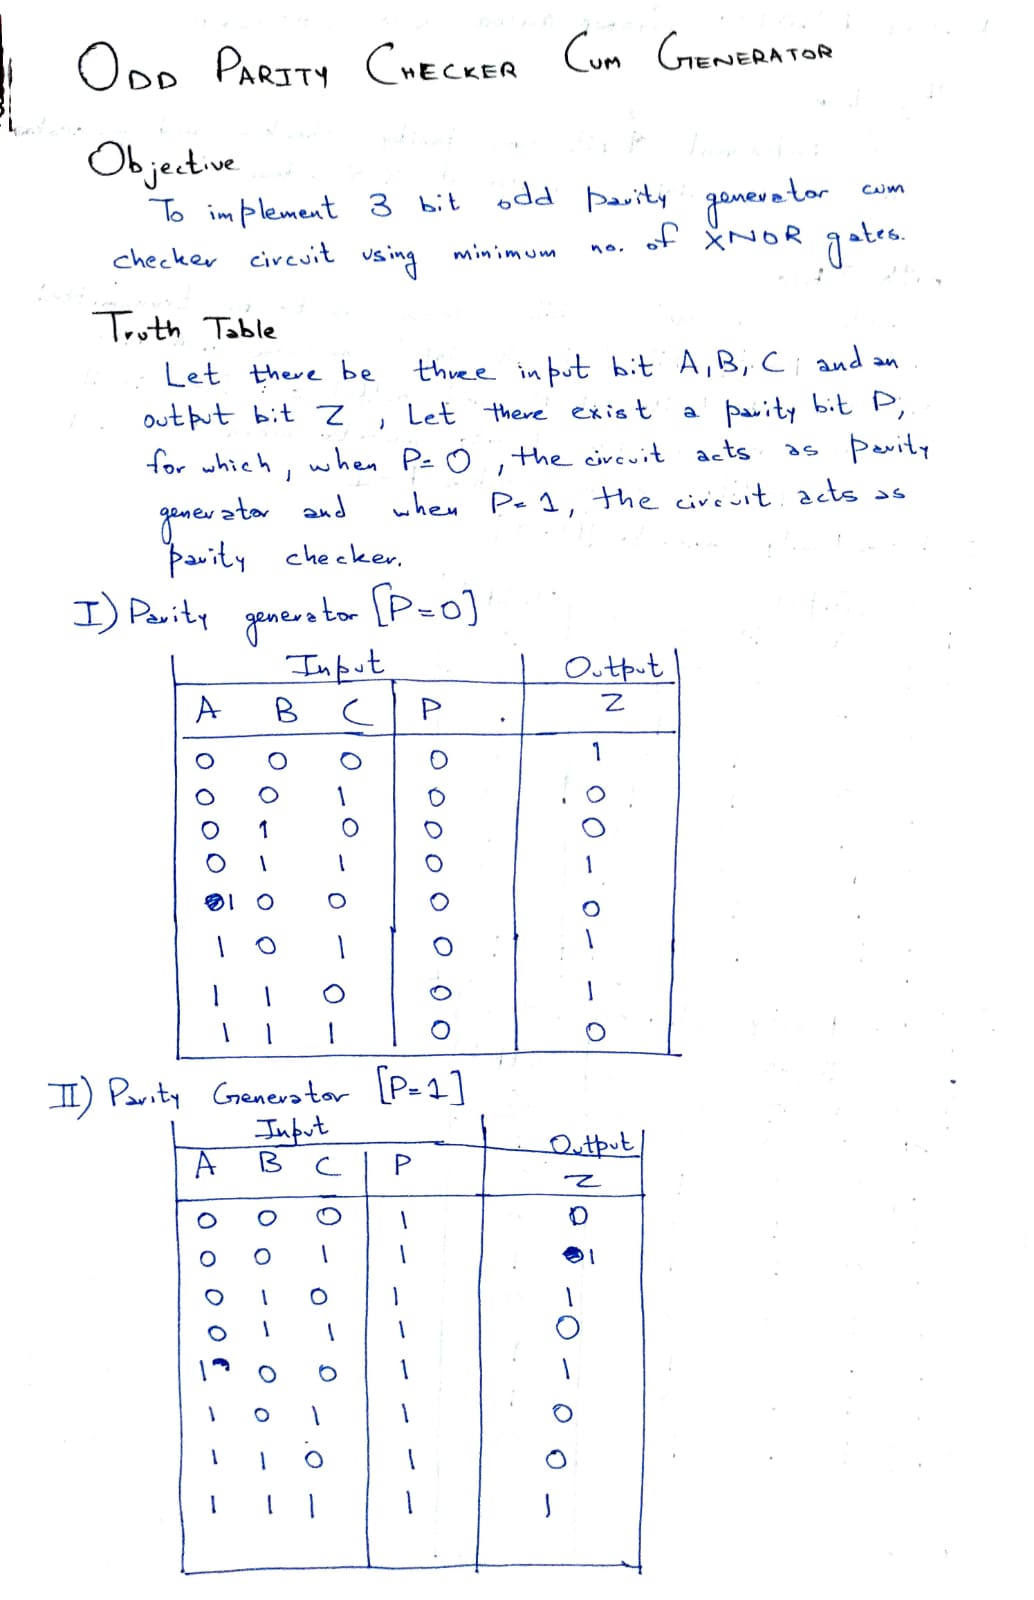 ODD PARITY CHECKER CUM GENERATOR
Objective
To implement 3 bit odd parity generator cum
checker circuit using minimum no. of XNOR gates.
Truth Table
Let there be three input bit A, B, C, and an
output bit Z, Let there exist a parity bit P,
for which, when P=0, the circuit acts as parity
generator and when P=1, the circuit acts as
parity checker.
I) Parity generator [P=0]
Input Output
A B C P Z
0 0 0 0 1
0 0 1 0 0
0 1 0 0 0
0 1 1 0 1
1 0 0 0 0
1 0 1 0 1
1 1 0 0 1
1 1 1 0 0
II) Parity Generator [P=1]
Input Output
A B C P Z
0 0 0 1 0
0 0 1 1 1
0 1 0 1 1
0 1 1 1 0
1 0 0 1 1
1 0 1 1 0
1 1 0 1 0
1 1 1 1 1